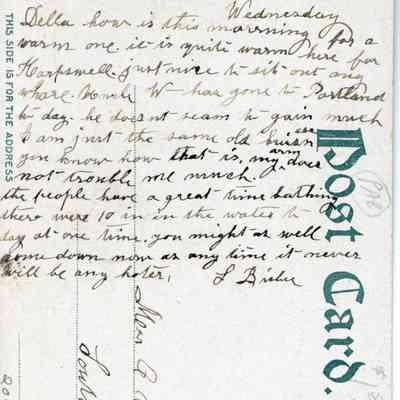 Wednesday
Della how is this morning for a
warm one it is quite warm here for
Harpswell. just nice to sit out any
whare Uncle W- has gone to Portland
to day. he doesnt seam to gain much
I am just the same old
you know how that is, my arm does
not trouble me much.
the people have a great time bathing
there were 10 in in the water to
day at one time. you might as well
come down now as any time it never
will be any hoter,
THIS SIDE IS FOR THE ADDRESS
Post Card.